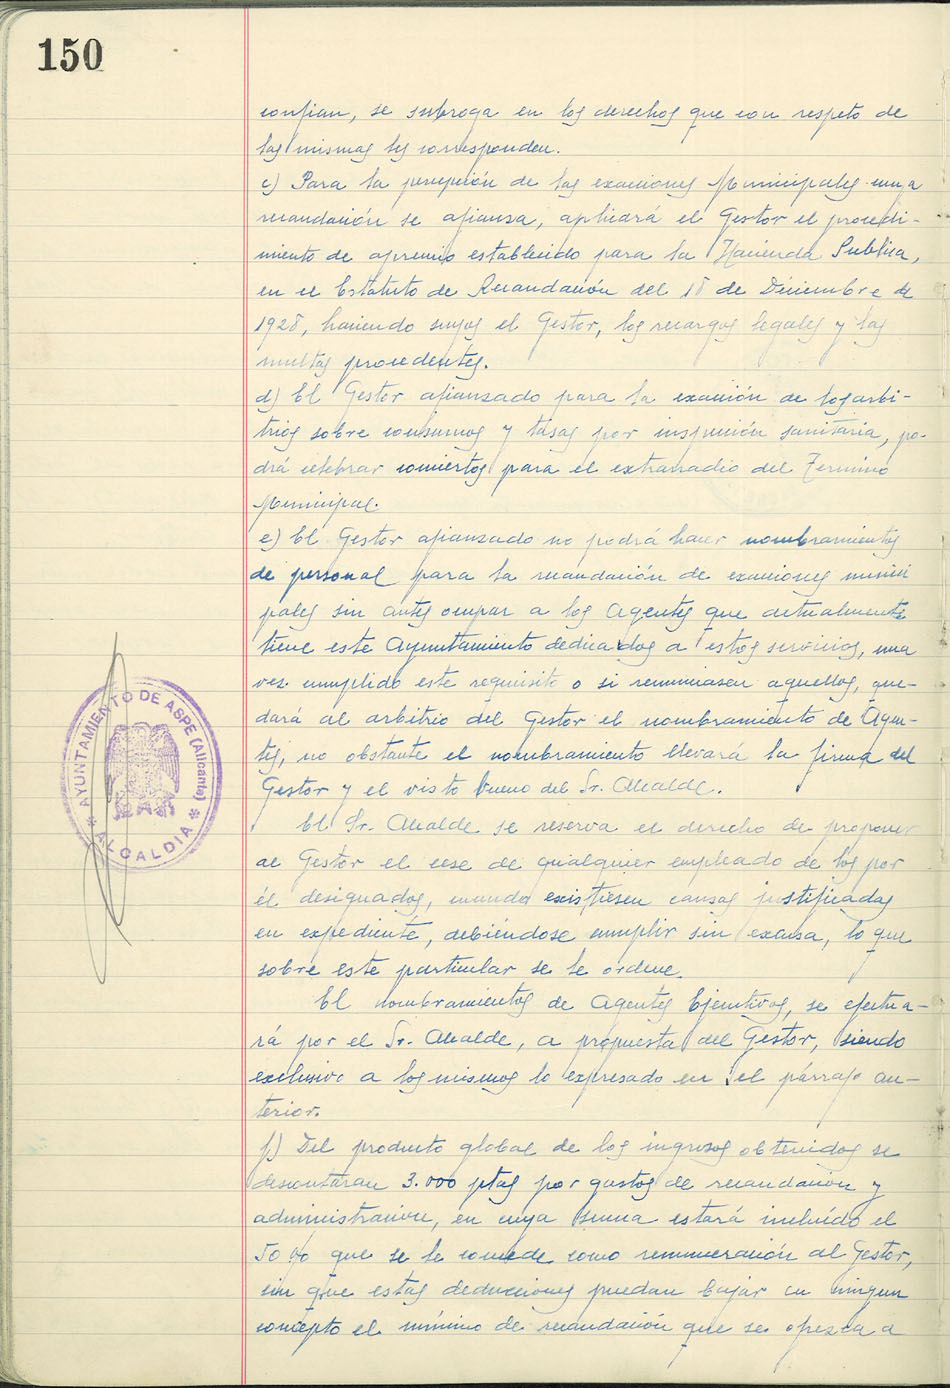 150
confian, se subroga en los derechos que con respeto de
las mismas les corresponden.
c) Para la percepción de las exacciones Municipales cuya
recaudación se afianza, aplicará el Gestor el procedi-
miento de apremio establecido para la Hacienda Publica,
en el Estatuto de Recaudación del 18 de Diciembre de
1928, haciendo suyos el Gestor, los recargos legales y las
multas procedentes.
d) El Gestor afianzado para la exacción de los arbi-
trios sobre consumos y tasas por inspección sanitaria, po-
drá celebrar conciertos para el extrarradio del Termino
Municipal.
e) El Gestor afianzado no podrá hacer nombramientos
de personal para la recaudación de exacciones munici
pales sin antes ocupar a los Agentes que actualmente
tiene este Ayuntamiento dedicados a estos servicios, una
vez cumplido este requisito o si renunciasen aquellos, que-
dará al arbitrio del Gestor el nombramiento de Agen-
tes, no obstante el nombramiento llevará la firma del
Gestor y el visto bueno del Sr. Alcalde.
El Sr. Alcalde se reserva el derecho de proponer
al Gestor el cese de qualquier empleado de los por
él designados, cuando existiesen causas justificadas
en expediente, debiéndose cumplir sin excusa, lo que
sobre este particular se le ordene.
El nombramientos de Agentes Ejecutivos, se efectua-
rá por el Sr. Alcalde, a propuesta del Gestor, siendo
exclusivo a los mismos lo expresado en el párrafo an-
terior.
f) Del producto global de los ingresos obtenidos se
descontaran 3.000 ptas por gastos de recaudación y
administracion, en cuya suma estará incluído el
50 % que se le concede como remuneración al Gestor,
sin que estas deducciones puedan bajar en ningun
concepto el mínimo de recaudación que se ofrezca a
AYUNTAMIENTO DE ASPE (Alicante)
* ALCALDIA *